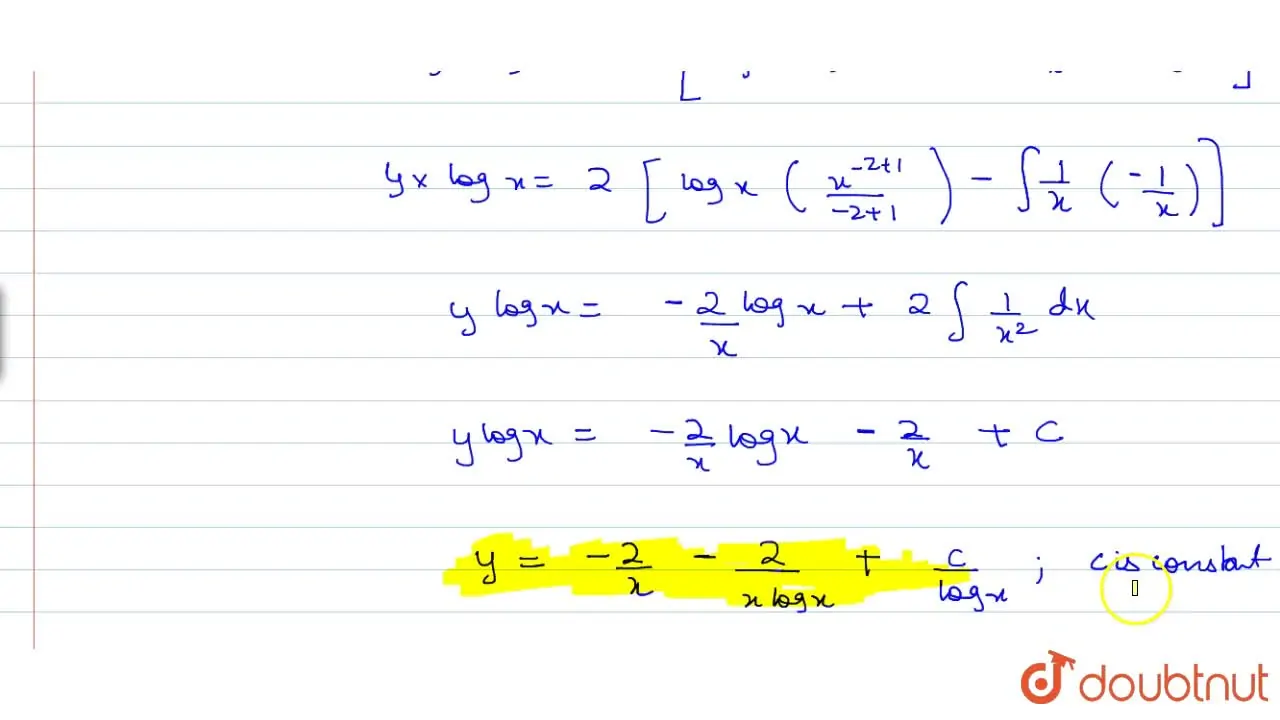 y × log x = 2 [ log x ( x^{-2+1} / -2+1 ) - ∫ 1/x ( -1/x ) ]
y log x = -2/x log x + 2 ∫ 1/x² dx
y log x = -2/x log x - 2/x + C
y = -2/x - 2/(x log x) + c/(log x) ; c is constant
doubtnut